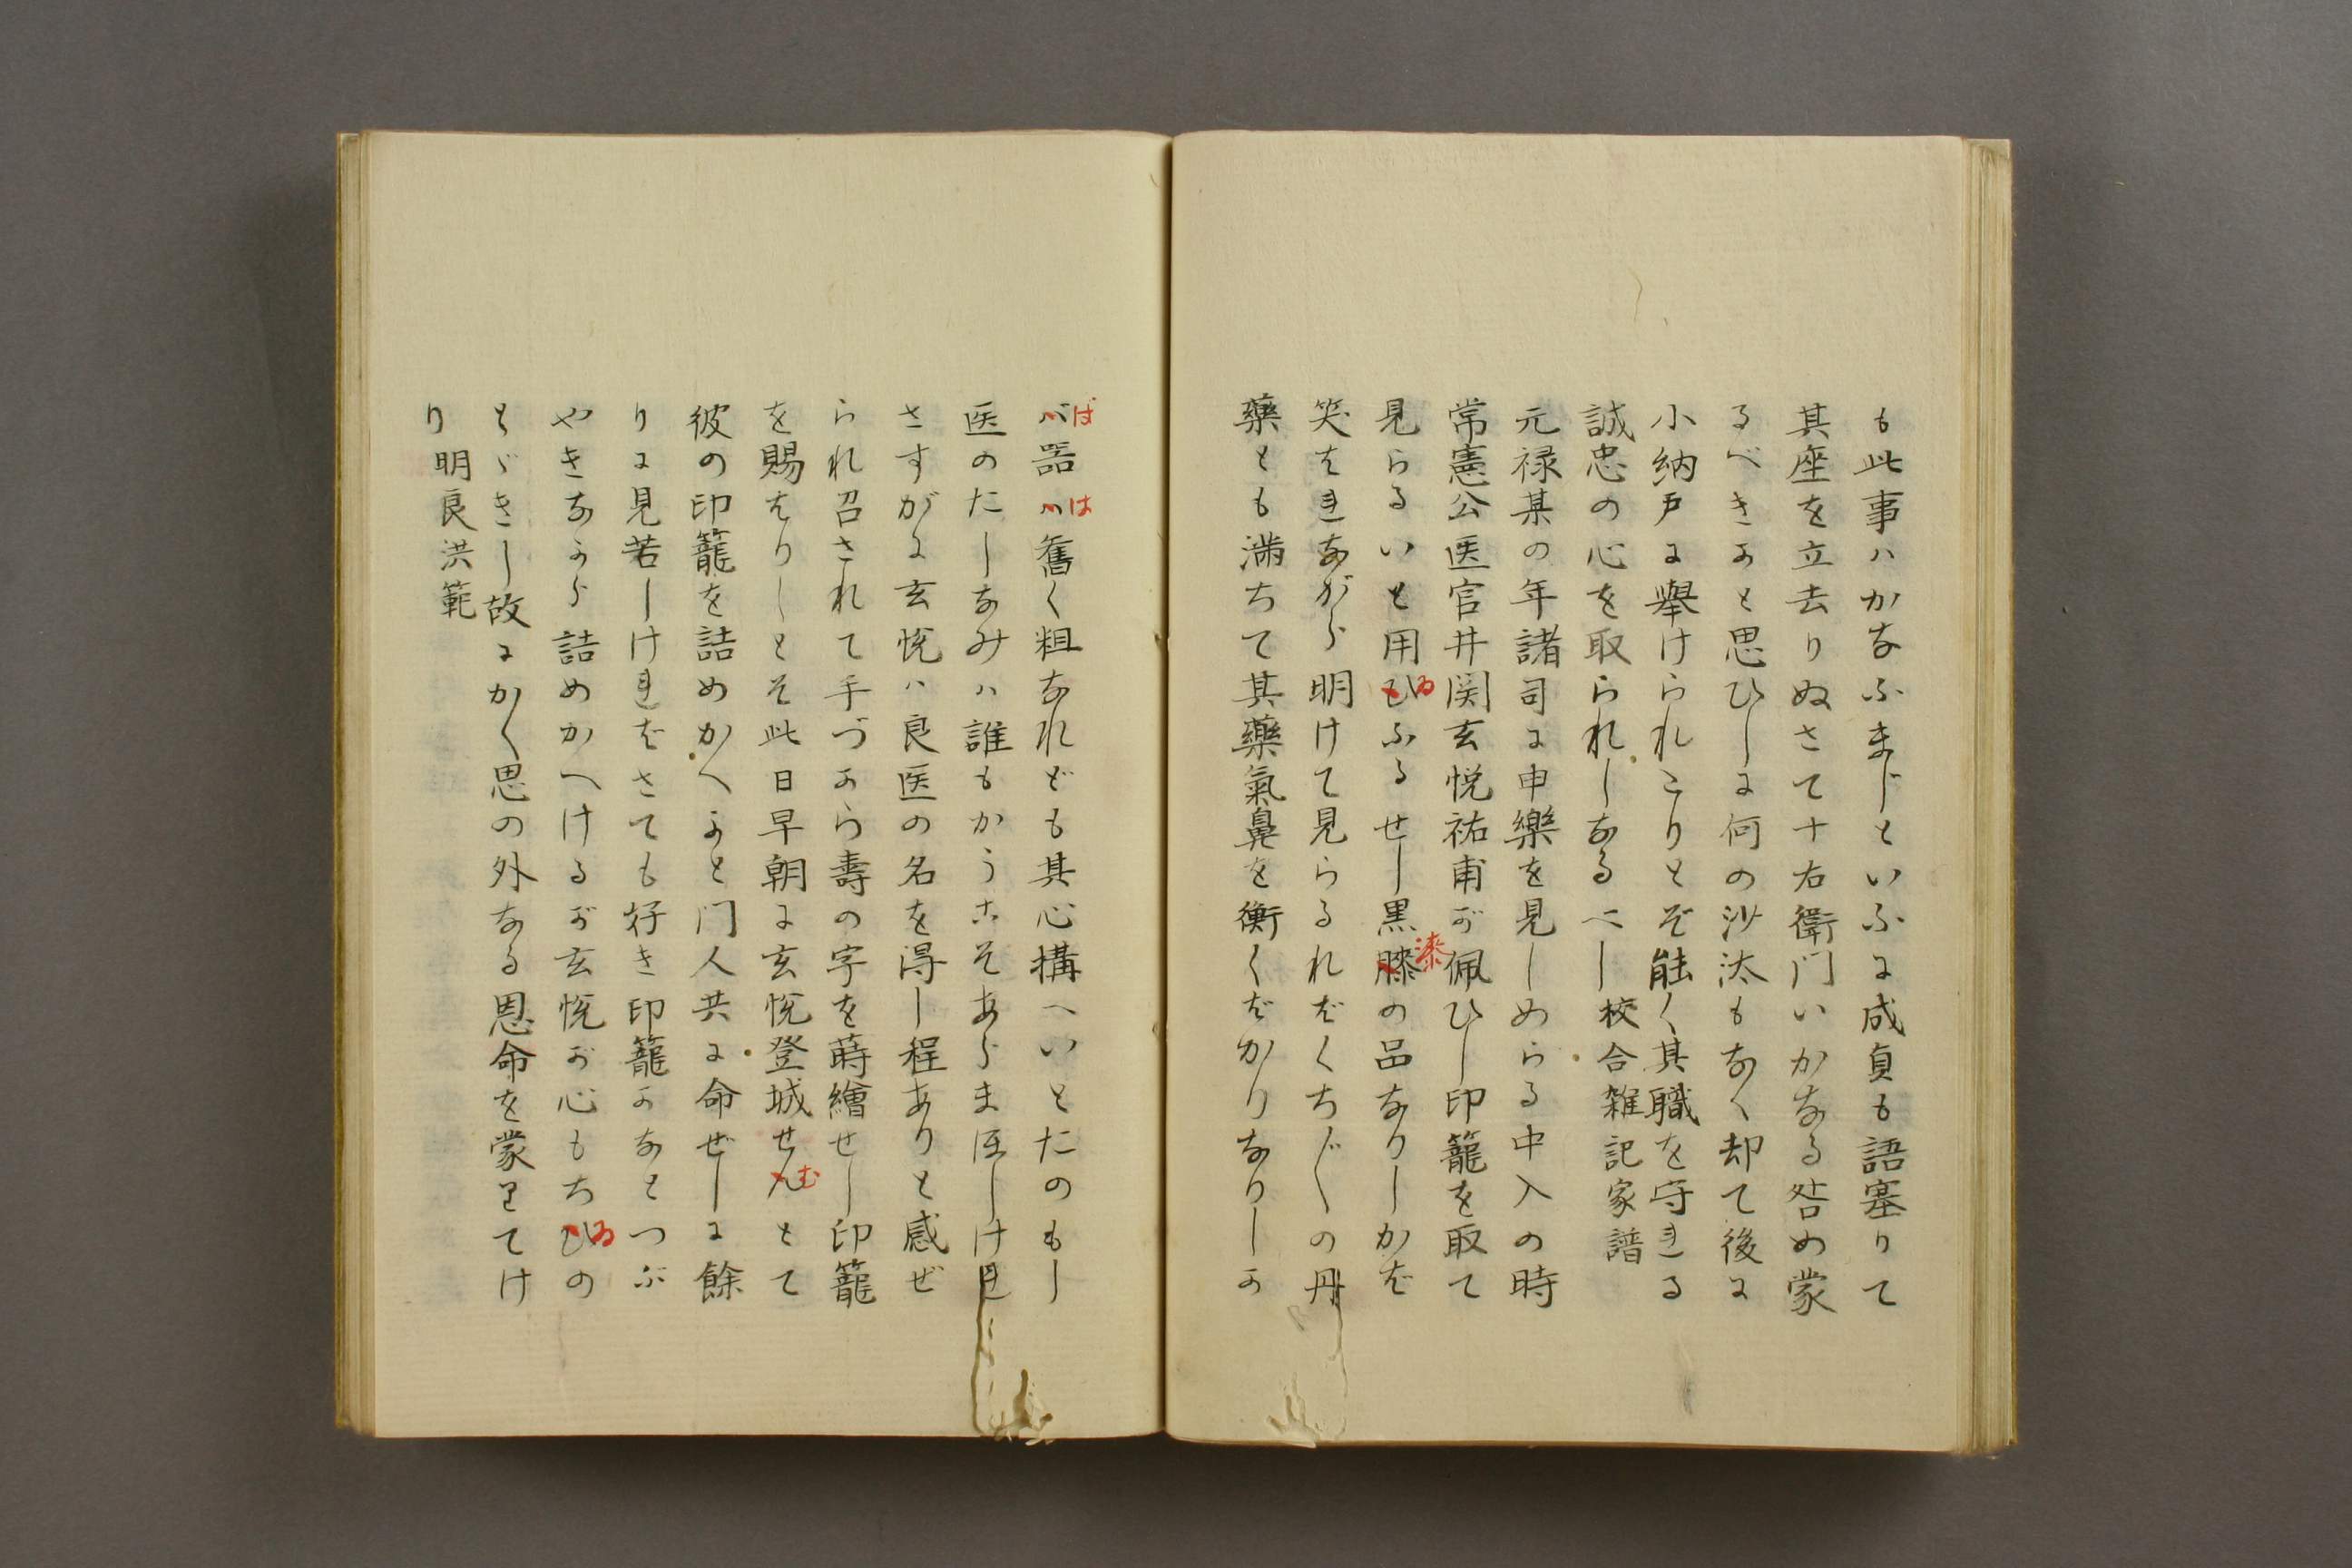 も此事ハかなふまじといふに成貞も語塞りて
其座を立去りぬさて十右衛門いかなる咎め蒙
るべきかと思ひしに何の沙汰もなく却て後に
小納戸に舉けられたりとぞ能く其職を守れる
誠忠の心を取られしなるべし 校合雑記家譜
元禄某の年諸司に申樂を見しめらる中入の時
常憲公医官井関玄悦祐甫が佩ひし印籠を取て
見らるいと用ひふるせし黒膝の品なりしかば
ゐ
漆
笑はれながら明けて見らるればくちぐの丹
藥とも満ちて其藥氣鼻を衝くばかりなりしか
バ器ハ舊く粗なれども其心構へいとたのもし
ば
は
医のたしなみハ誰もかうこそあらまほしけれ
さすがに玄悦ハ良医の名を得し程ありと感ぜ
られ召されて手づから壽の字を蒔繪せし印籠
を賜はりしとそ此日早朝に玄悦登城せんとて
む
彼の印籠を詰めかへよと門人共に命ぜしに餘
りに見若しければさても好き印籠かなとつぶ
やきながら詰めかへけるが玄悦が心もちひの
ゐ
とゞきし故にかく思の外なる恩命を蒙りてけ
り 明良洪範